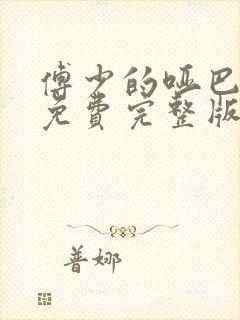 傅少的哑巴
免費完整版
普娜